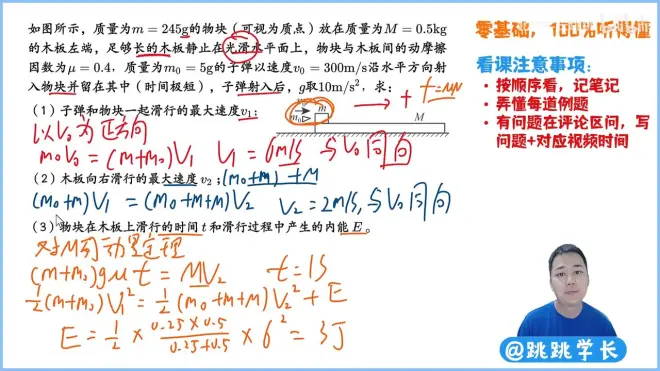 如图所示，质量为m＝245g的物块（可视为质点）放在质量为M＝0.5kg
的木板左端，足够长的木板静止在光滑水平面上，物块与木板间的动摩擦
因数为μ＝0.4．质量为m₀＝5g的子弹以速度v₀＝300m/s沿水平方向射
入物块并留在其中（时间极短），子弹射入后，g取10m/s²．求：
（1）子弹和物块一起滑行的最大速度v₁；
以V₀为正方向
m₀V₀ = (m+m₀)V₁ V₁ = 6m/s 与V₀同向
m₀
m
M
+
f=μN
（2）木板向右滑行的最大速度v₂；(m₀+m)+M
(m₀+m)V₁ = (m₀+m+M)V₂ V₂ = 2m/s, 与V₀同向
（3）物块在木板上滑行的时间t和滑行过程中产生的内能E。
对M 动量定理
(m+m₀)gμt = MV₂ t = 1S
½(m+m₀)V₁² = ½(m₀+m+M)V₂² + E
E = ½ × 0.25×0.5/0.25+0.5 × 6² = 3J
零基础，100%听得懂
看课注意事项：
• 按顺序看，记笔记
• 弄懂每道例题
• 有问题在评论区问，写
问题+对应视频时间
@跳跳学长